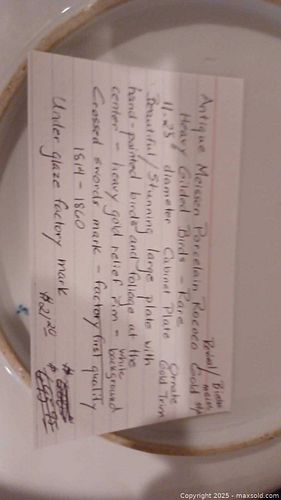 Antique Meissen Porcelain Rococo Revival/
Heavy Gilded Birds - Rare Gold
11.25 diameter Cabinet Plate Ornate Gold Trim
Beautiful/Stunning large plate with
hand-painted birds and foliage at the
center - heavy gold relief rim - white background
Crossed swords mark - factory first quality
1814 - 1860
Under glaze factory mark
Copyright © 2025 - maxsold.com